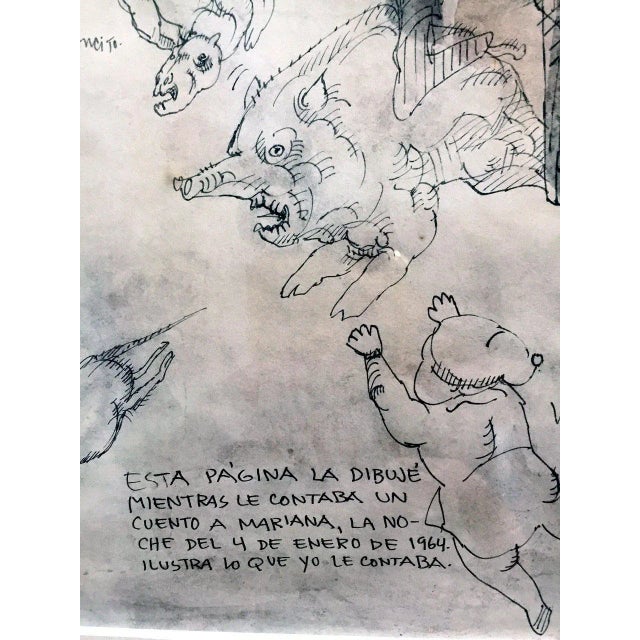 ESTA PÁGINA LA DIBUJÉ
MIENTRAS LE CONTABA UN
CUENTO A MARIANA, LA NO-
CHE DEL 4 DE ENERO DE 1964.
ILUSTRA LO QUE YO LE CONTABA.